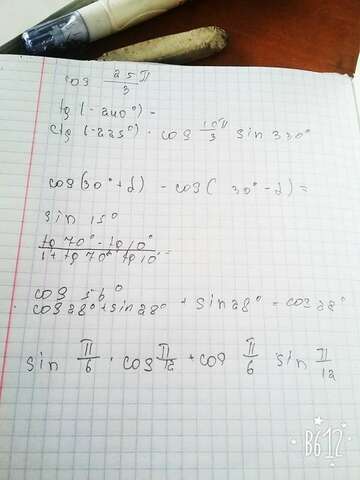 cos 25π/3
tg (-240°) -
ctg (-225°) · cos 10π/3 sin 330°
cos(30° + α) - cos( 30° - α) =
sin 15°
tg 70° - tg 10° / 1 + tg 70° tg 10° =
cos 56° / cos 28° + sin 28° + sin 28° - cos 28°
sin π/6 · cos π/12 + cos π/6 sin π/12
B612